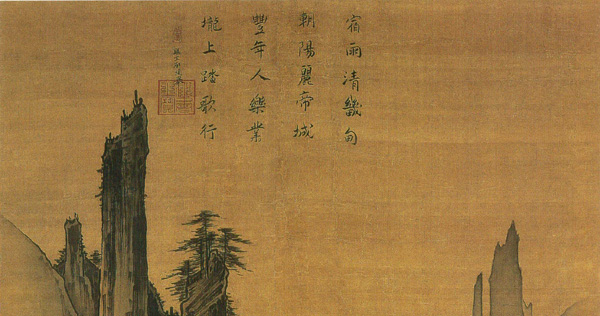 宿雨清畿甸
朝陽麗帝城
豐年人樂業
壠上踏歌行